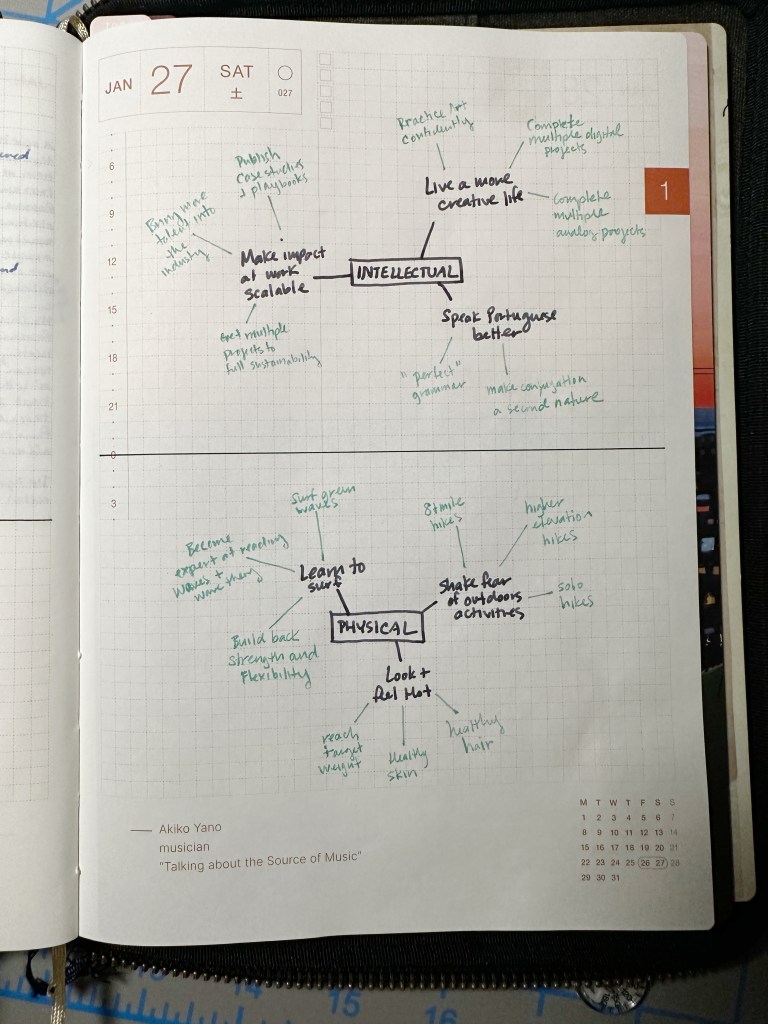 JAN 27 SAT
土 027
1
6
9
12
15
18
21
0
3
Publish
case studies
+ playbooks
Bring more
talent into
the
industry
Make impact
at work
scalable
Get multiple
projects to
full sustainability
INTELLECTUAL
Practice Art
confidently
Complete
multiple digital
projects
Live a more
creative life
complete
multiple
analog projects
Speak Portuguese
better
"perfect"
grammer
make conjugation
a second nature
Surf green
waves
Become
expert at reading
waves +
wave theory
Learn to
surf
Build back
strength and
Flexibility
PHYSICAL
8+ mile
hikes
higher
elevation
hikes
Shake fear
of outdoors
activities
solo
hikes
Look +
feel Hot
reach
target
weight
Healthy
skin
healthy
hair
Akiko Yano
musician
"Talking about the Source of Music"
M T W T F S S
1 2 3 4 5 6 7
8 9 10 11 12 13 14
15 16 17 18 19 20 21
22 23 24 25 26 27 28
29 30 31
14
15
16